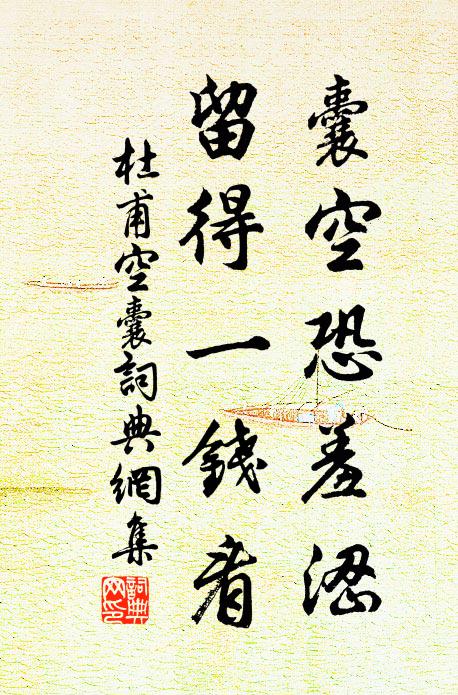 囊空恐羞澀
留得一錢看
杜甫空囊詞典網集
詞典网印